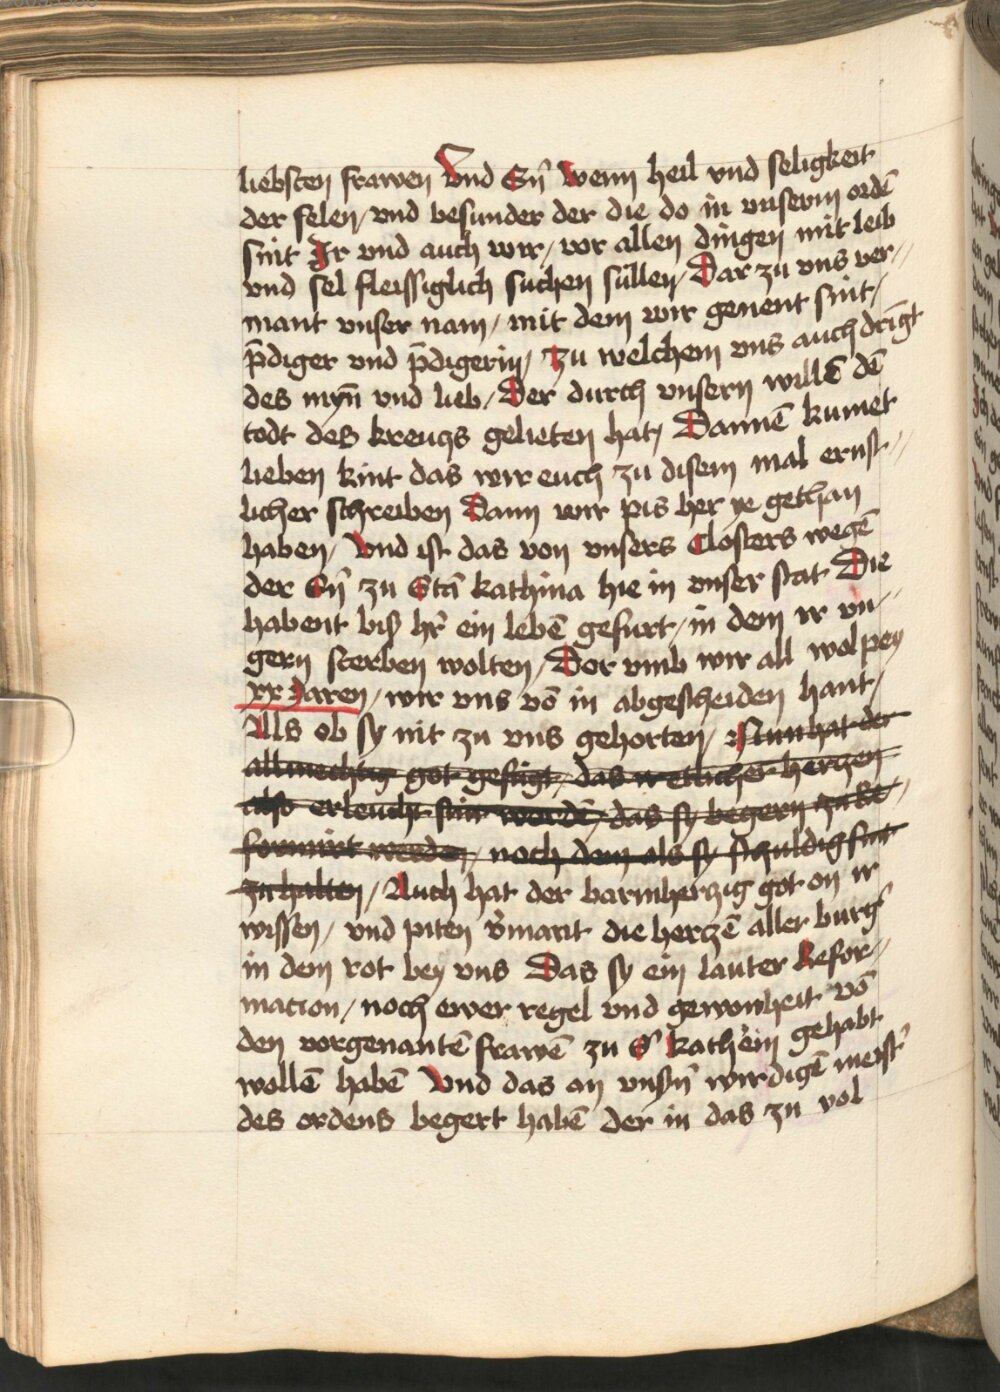 liebsten frawen Vnd Sū Wenn heil vnd seligkeit
der selen / vnd besunder der die do in vnserm ordē
sint Ir vnd auch wir / vor allen dingen mit leib
vnd sel fleissiglich suchen sullen / Dar zu vns ver-
mant vnser nam / mit dem wir genent sint /
p̄diger vnd p̄digerin / Zu welchem vns auch drīgt
des myn̄ vnd lieb / Der durch vnsern willē dē
todt des kreuczs gelieten hat / Dannē kumet
lieben kint das wir euch zu disem mal ernst-
licher schreiben Dann wir pis her ye gethan
haben / Vnd ist das von vnsers Closters wegē
der Sū zu Sctā kathrina hie in vnser stat Die
habent biß hr̄ ein lebē gefurt / in dem ir vn-
gern sterben wolten / Dor vmb wir all wol pey
xx Jaren / wir vns vō in abgescheiden hant /
Als ob sy nit zu vns gehorten / Nun hat der
allmechtig got gefugt / das ir etlicher herczen
also erleucht sint wordē / das sy begern zu re-
formirt werden / noch dem als sy schuldig sint
zu halten / Auch hat der barmherczig got on ir
wissen / vnd piten v̄mant die herczē aller burg̉
in dem rot bey vns Das sy ein lauter Refor-
macion / noch ewer regel vnd gewonheit vō
den vorgenantē frawē zu S kath̉ein gehabt
wollē habē Vnd das an vnsn̄ wirdigē meist̉
des ordens begert habē der in das zu vol